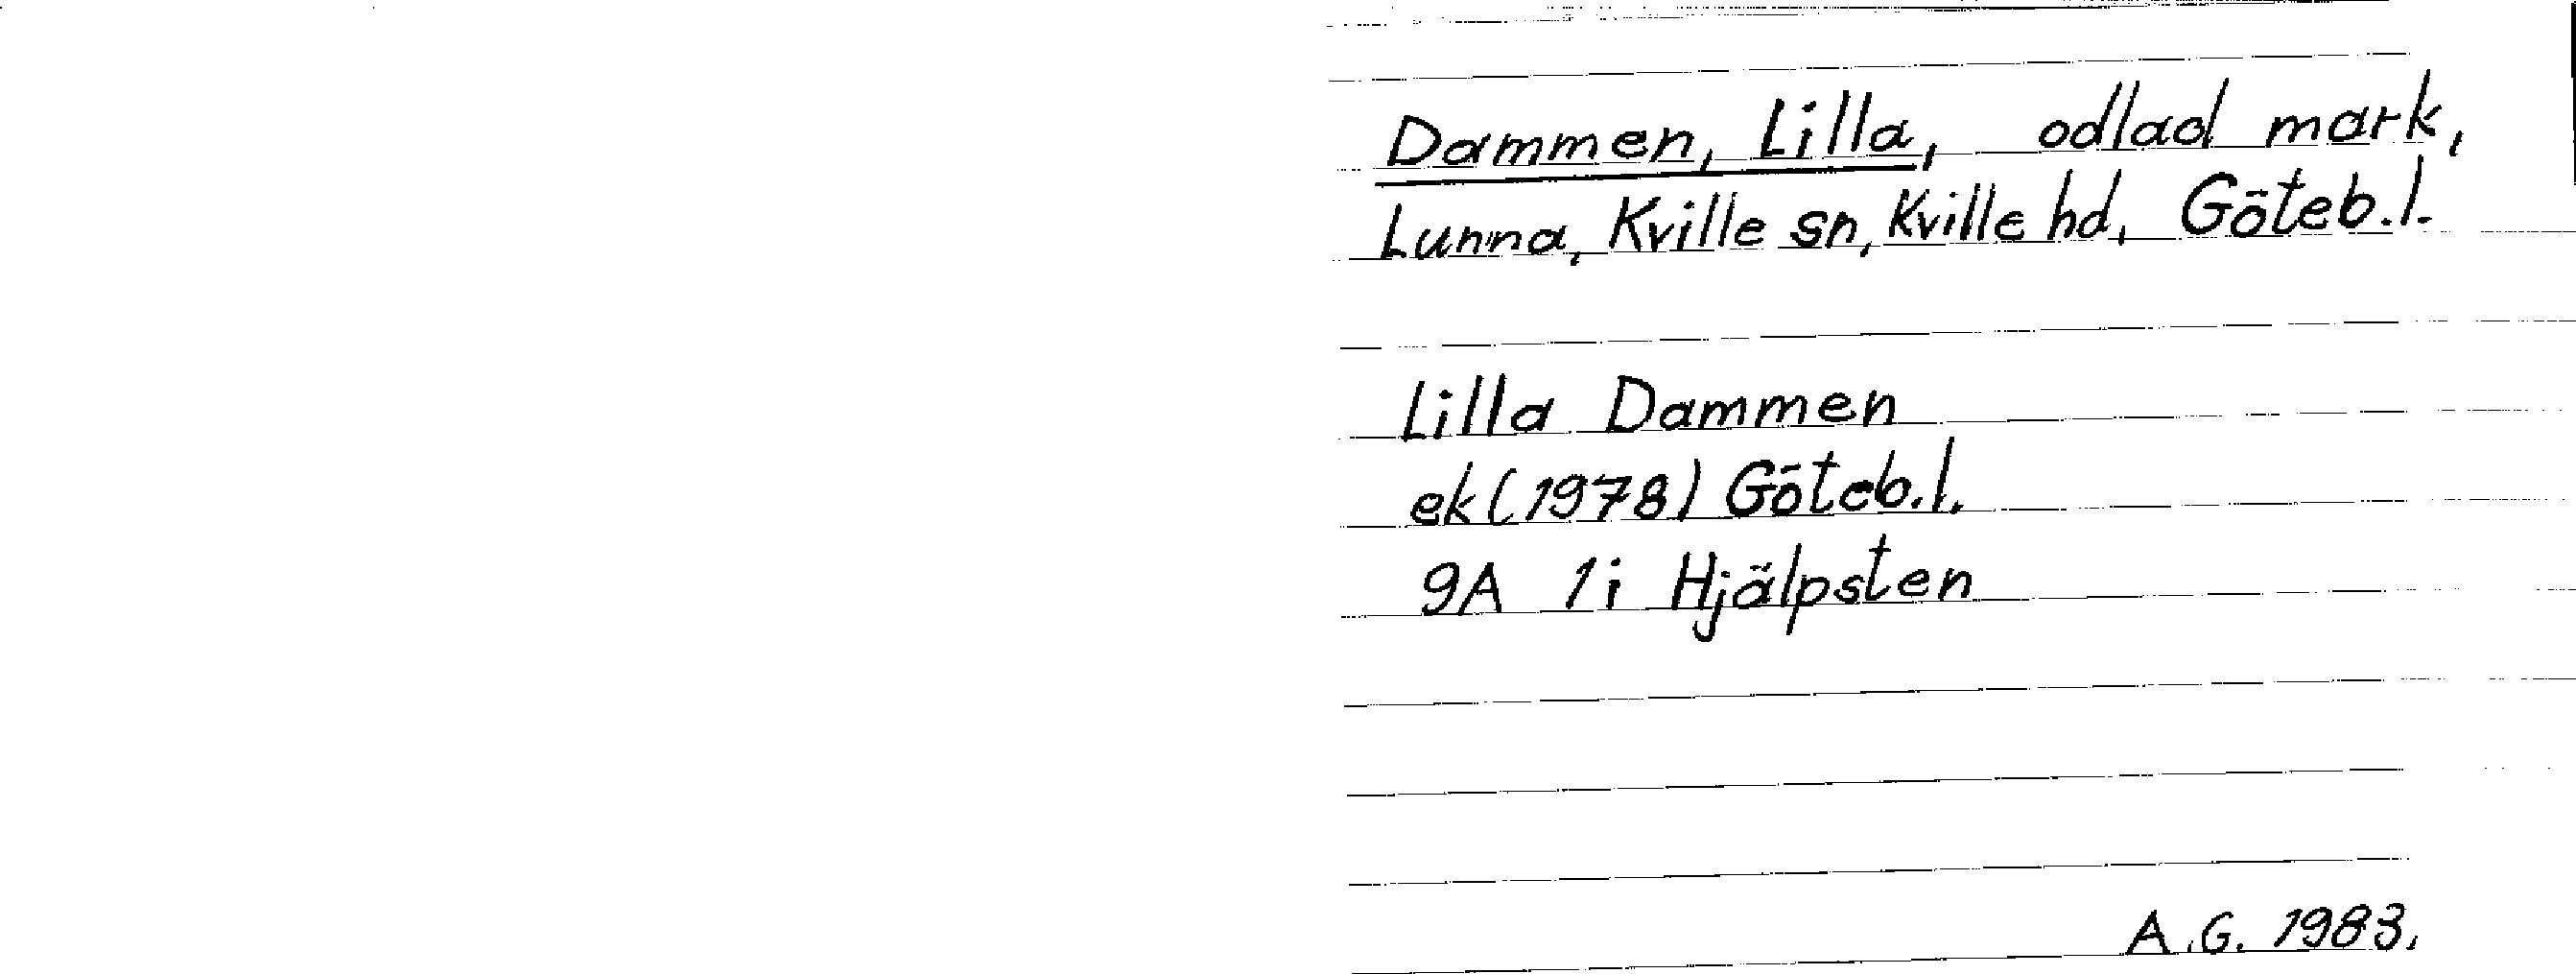 Dammen, Lilla, odlad mark,
Lunna, Kville sn, Kville hd, Göteb.l.
Lilla Dammen
ek (1978) Göteb.l.
9A 1i Hjälpsten
A.G. 1983.